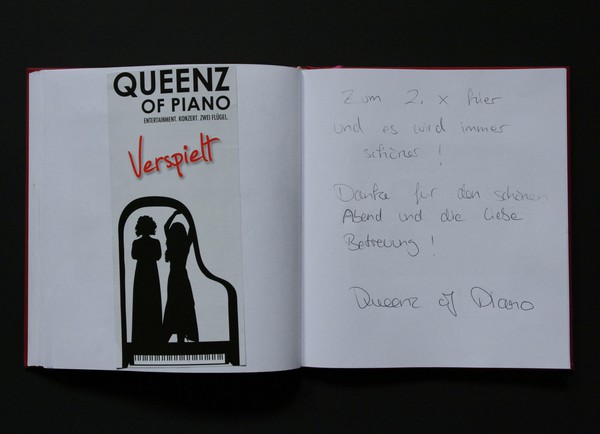 QUEENZ
OF PIANO
ENTERTAINMENT. KONZERT. ZWEI FLÜGEL.
Verspielt
Zum 2. x hier
und es wird immer
schöner!
Danke für den schönen
Abend und die liebe
Betreuung!
Queenz of Piano